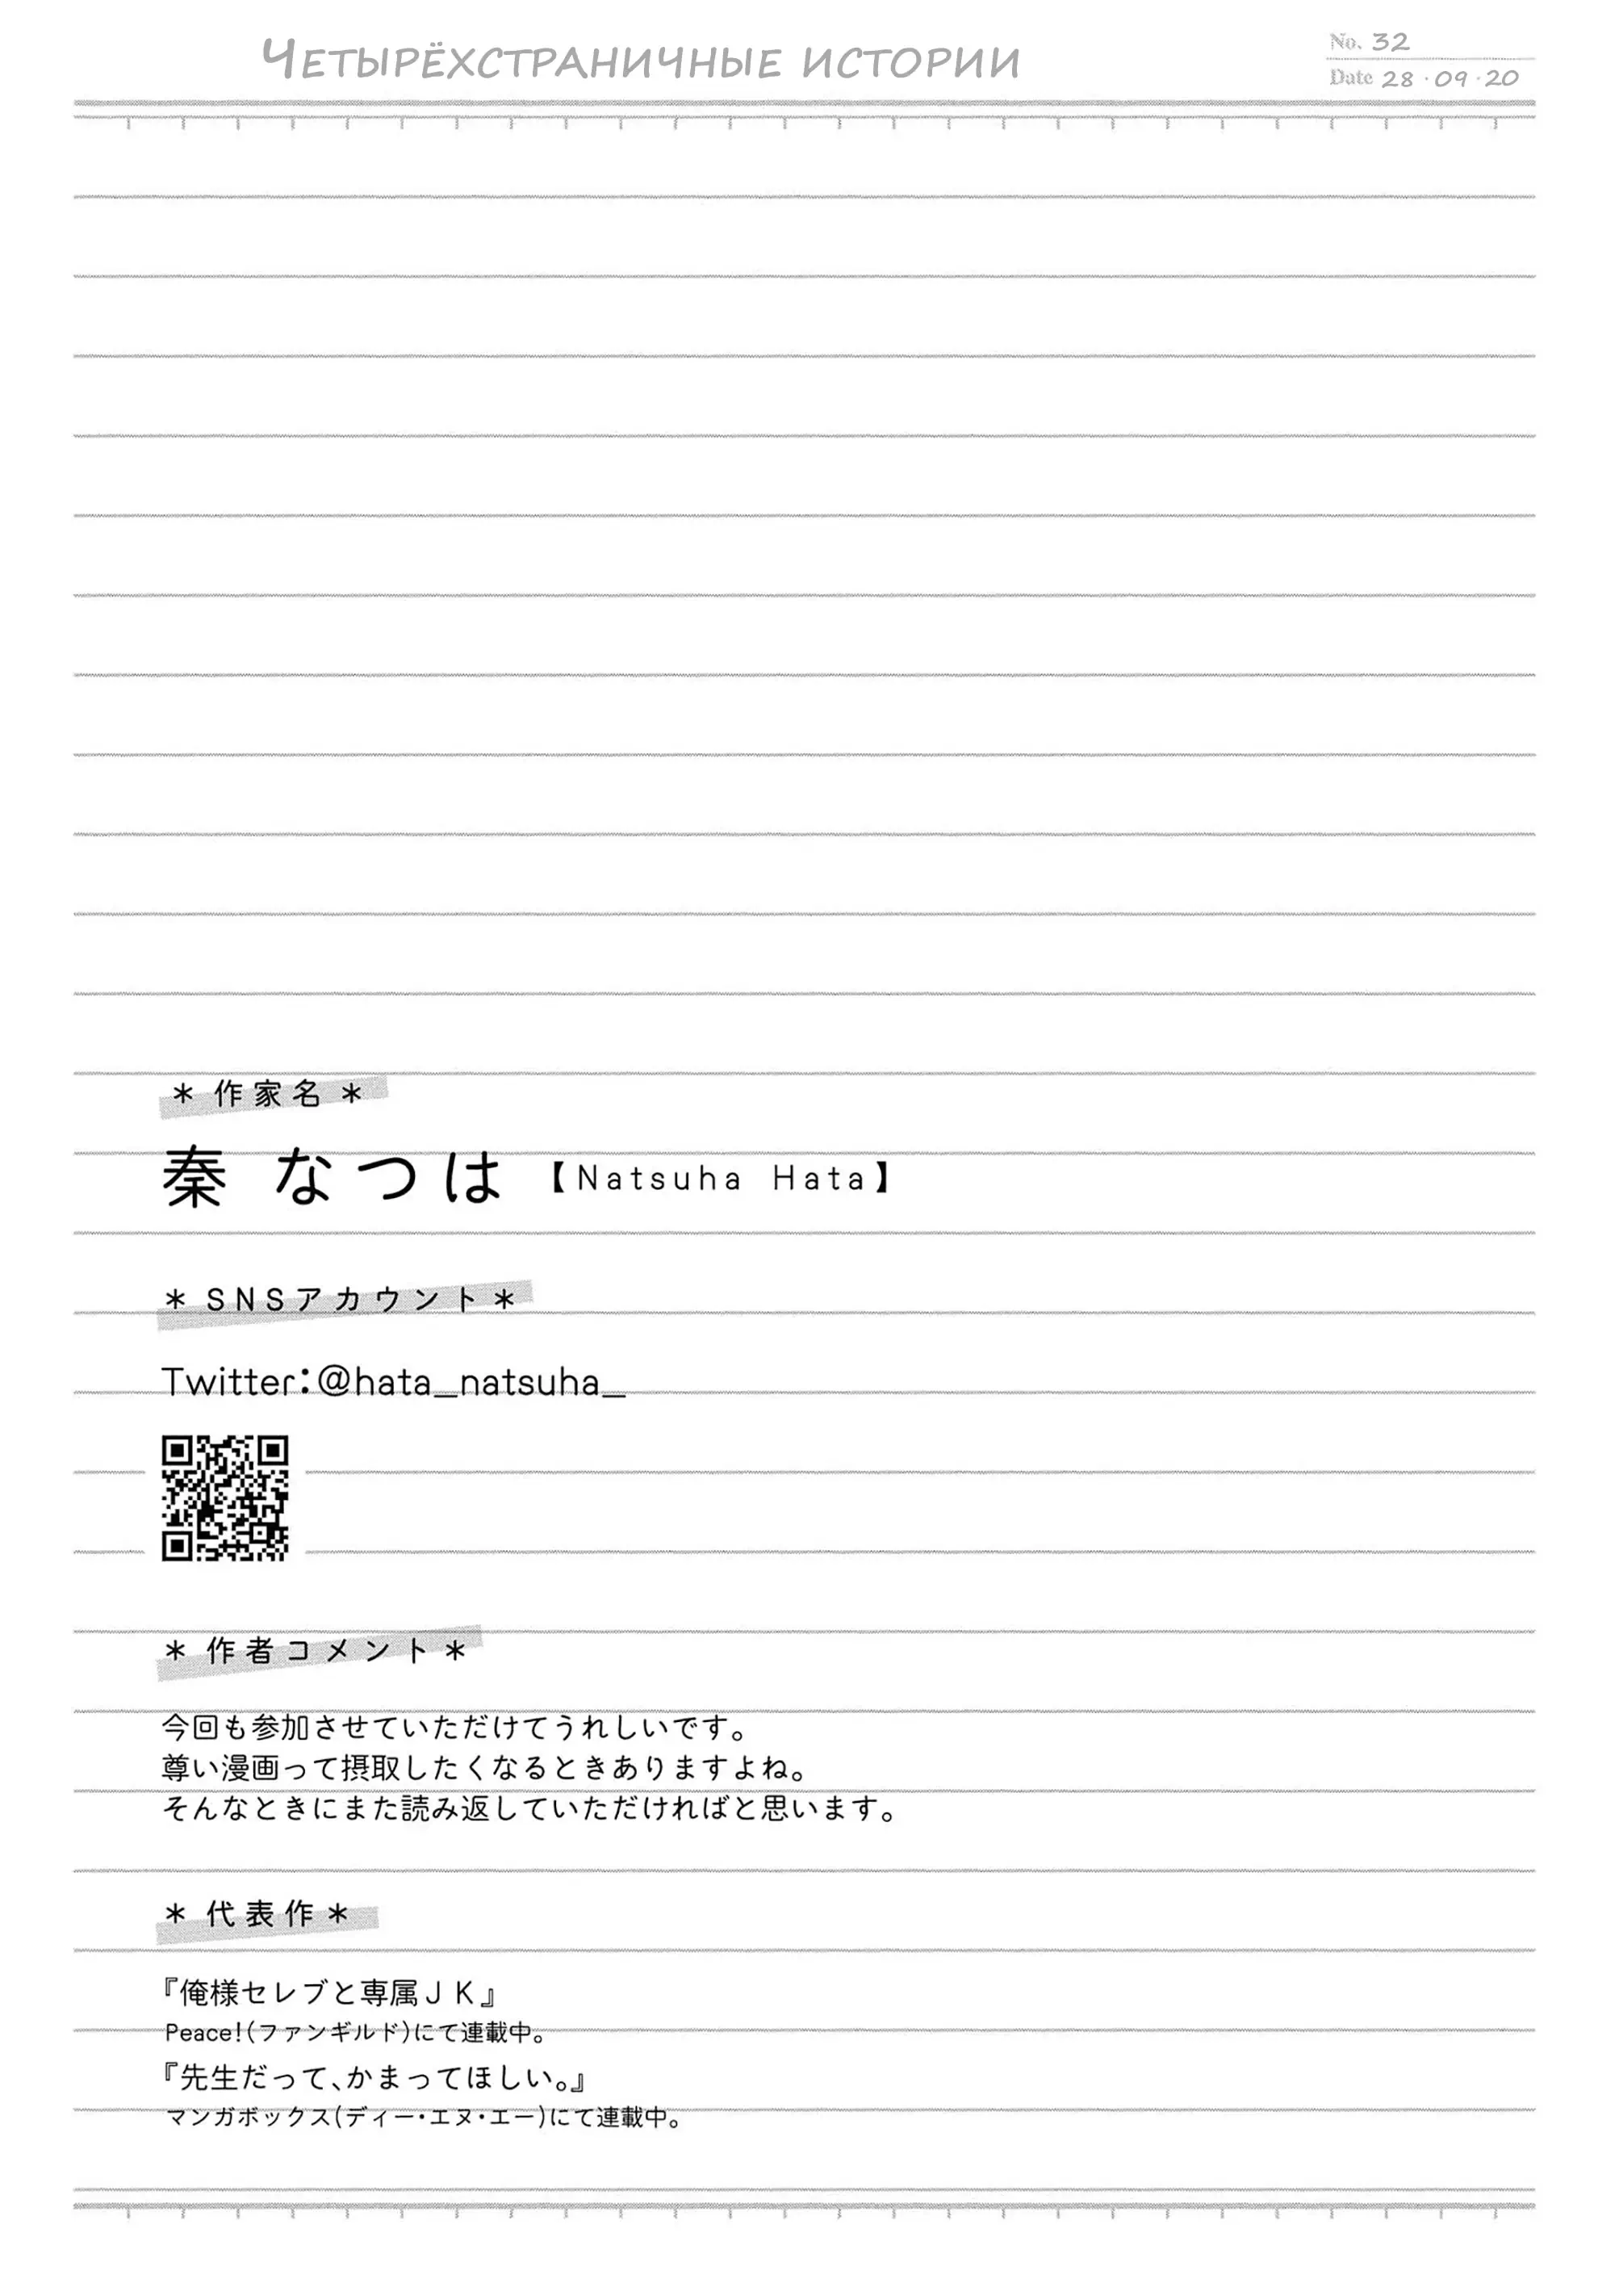 Четырёхстраничные истории
No. 32
Date 28・09・20
＊ 作家名 ＊
秦 なつは 【Natsuha Hata】
＊ SNSアカウント ＊
Twitter：@hata_natsuha_
＊ 作者コメント ＊
今回も参加させていただけてうれしいです。
尊い漫画って摂取したくなるときありますよね。
そんなときにまた読み返していただければと思います。
＊ 代表作 ＊
『俺様セレブと専属ＪＫ』
Peace!(ファンギルド)にて連載中。
『先生だって、かまってほしい。』
マンガボックス(ディー・エヌ・エー)にて連載中。